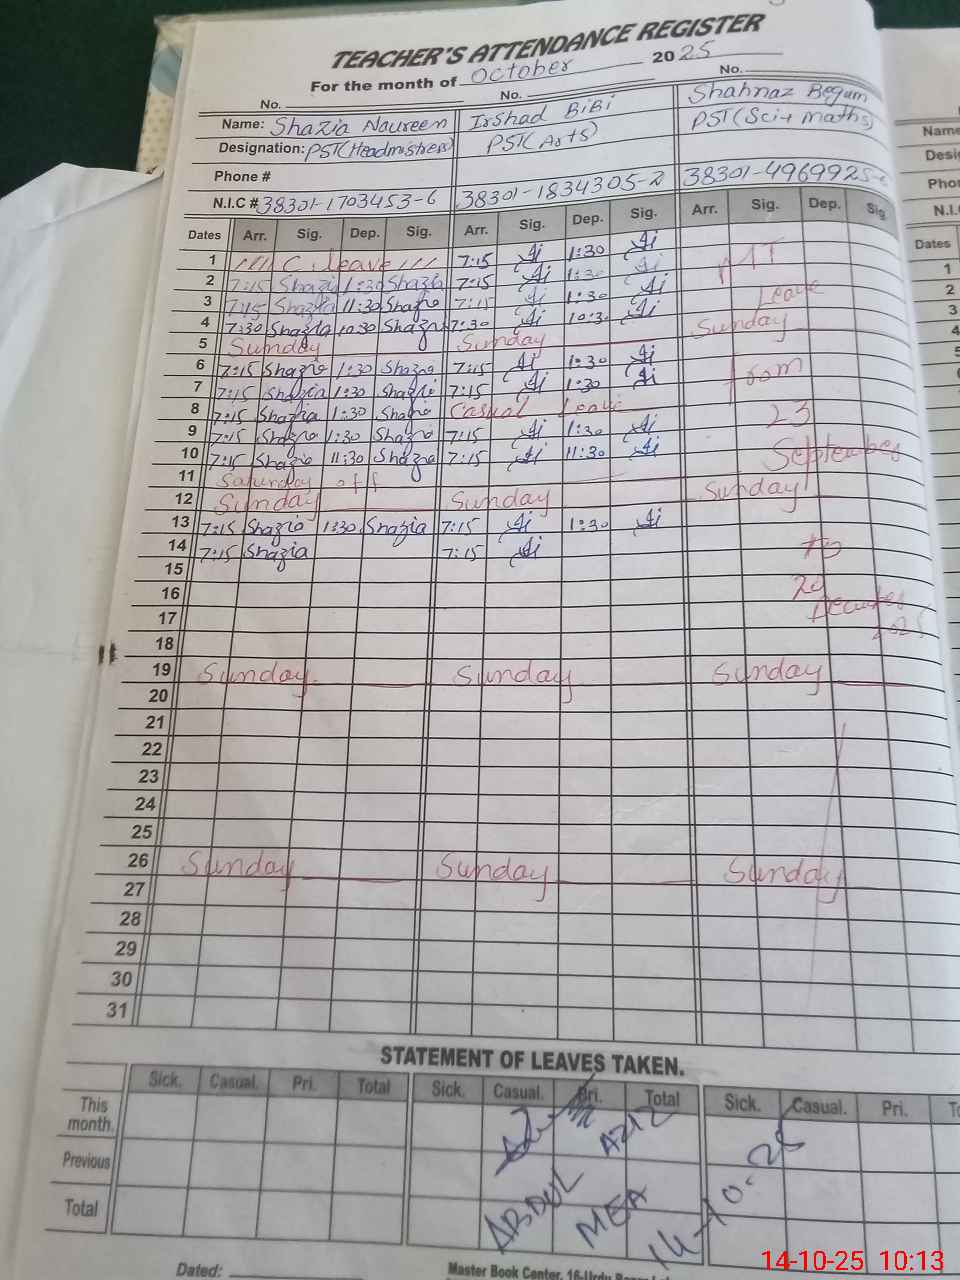 TEACHER'S ATTENDANCE REGISTER
For the month of October 2025
No. No. No.
Name: Shazia Naureen Irshad BiBi Shahnaz Begum
Designation: PST(Headmistress) PST(Arts) PST(Sci+maths)
Phone #
N.I.C # 38301-1703453-6 38301-1834305-2 38301-4969925-
Dates Arr. Sig. Dep. Sig. Arr. Sig. Dep. Sig. Arr. Sig. Dep. Sig.
1 C. leave 7:15 1:30
2 7:15 Shazia 1:30 Shazia 7:15 1:30
3 7:15 Shazia 11:30 Shazia 7:15 1:30 Leave
4 7:30 Shazia 10:30 Shazia 7:30 10:30
5 Sunday Sunday Sunday
6 7:15 Shazia 1:30 Shazia 7:15 1:30
7 7:15 Shazia 1:30 Shazia 7:15 1:30 from
8 7:15 Shazia 1:30 Shazia Casual Leave
9 7:15 Shazia 1:30 Shazia 7:15 1:30 23
10 7:15 Shazia 11:30 Shazia 7:15 11:30 September
11 Saturday off
12 Sunday Sunday Sunday
13 7:15 Shazia 1:30 Shazia 7:15 1:30
14 7:15 Shazia 7:15 to
15
16
17 2025
18
19 Sunday Sunday Sunday
20
21
22
23
24
25
26 Sunday Sunday Sunday
27
28
29
30
31
STATEMENT OF LEAVES TAKEN.
Sick. Casual. Pri. Total Sick. Casual. Pri. Total Sick. Casual. Pri.
This month.
Previous
Total
ABDUL AZIZ
MEA
14-10-25
Dated:
Master Book Center, 16-Urdu
14-10-25 10:13
Name
Dates
1
2
3
4